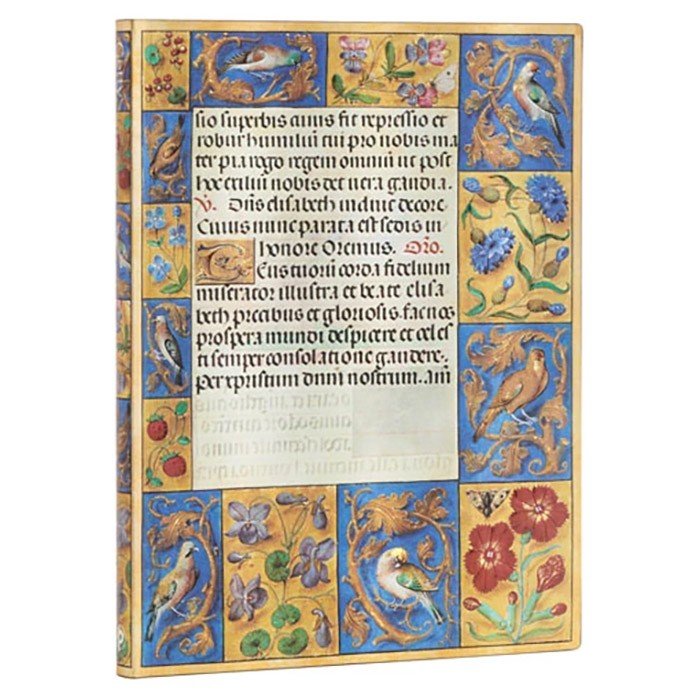 sio superbis cuius fit repressio et
robur humiliū tui pro nobis ma
ter pia rego regem omniū ut post
hoc exiliū nobis det uera gaudia.
V. Dn̄s elisabeth induit decore.
Cuius nunc parata est sedis in
honore Oremus. Oro.
Tui st corda fidelium
miserator illustra et beate elisa
beth precibus et gloriosis. fac nos
prospera mundi despicere et celes
ti semper consolatione gaudere.
Per xpristum dnm̄ nostrum. am̄